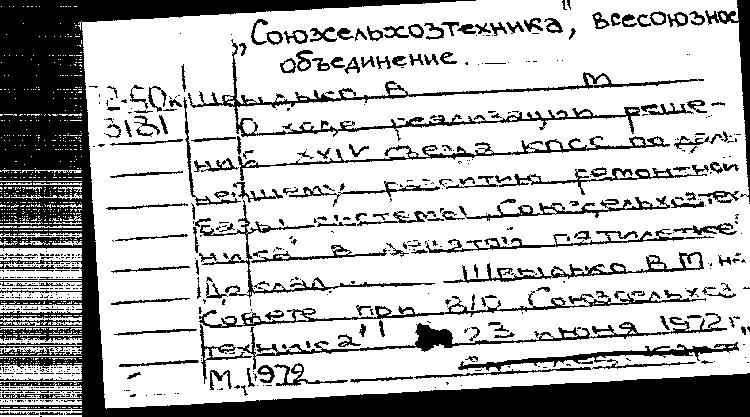 „Союзсельхозтехника", всесоюзное
объединение.
72-50к Швыдько, В М
3131 О ходе реализации реше-
ний XXIV съезда КПСС по даль-
нейшему развитию ремонтной
базы системы „Союзсельхозтех-
ника" в девятой пятилетке.
Доклад ... Швыдько В.М. на
Совете при В/О „Союзсельхоз-
техника" 23 июня 1972 г.
М. 1972